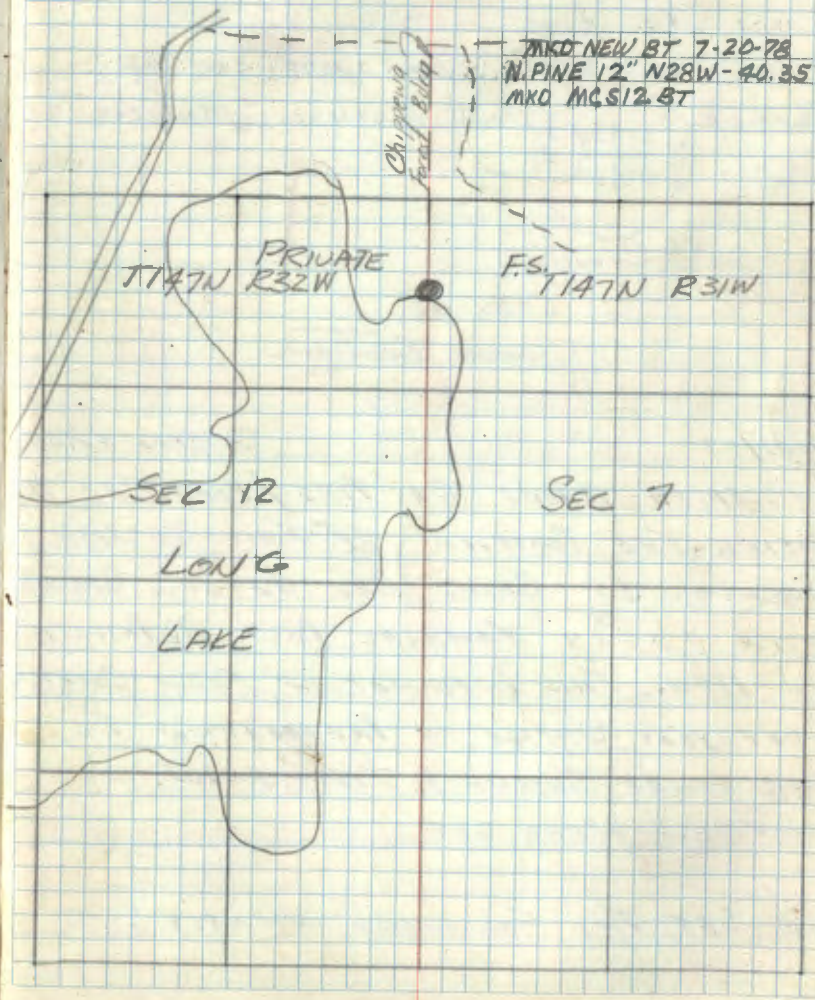 MKD NEW BT 7-20-78
N. PINE 12" N28W-40.35
MKD MCS12 BT
Chippewa
Forest Bdry
PRIVATE
T147N R32W
F.S.
T147N R31W
SEC 12
SEC 7
LONG
LAKE